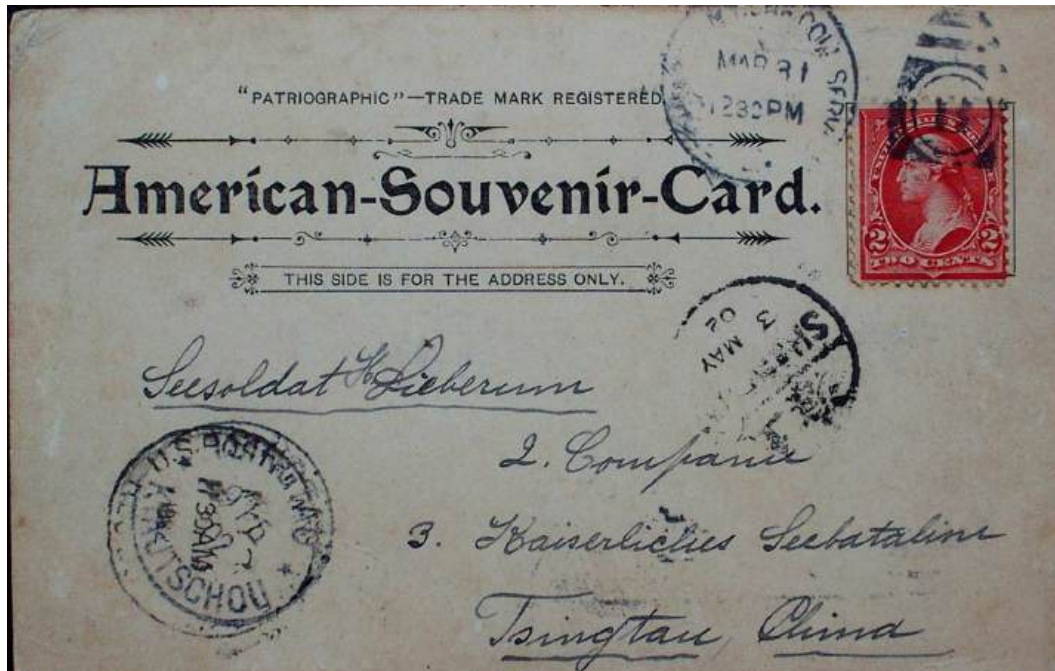 "PATRIOGRAPHIC"—TRADE MARK REGISTERED
American-Souvenir-Card.
THIS SIDE IS FOR THE ADDRESS ONLY.
MAR 31
1230PM
UNITED STATES
2 2
TWO CENTS
3
MAY
02
Seesoldat H Lieberum
2. Companie
3. Kaiserliches Seebatalion
Tsingtau, China
U.S. POSTAL
30AM
KIAUTSCHOU